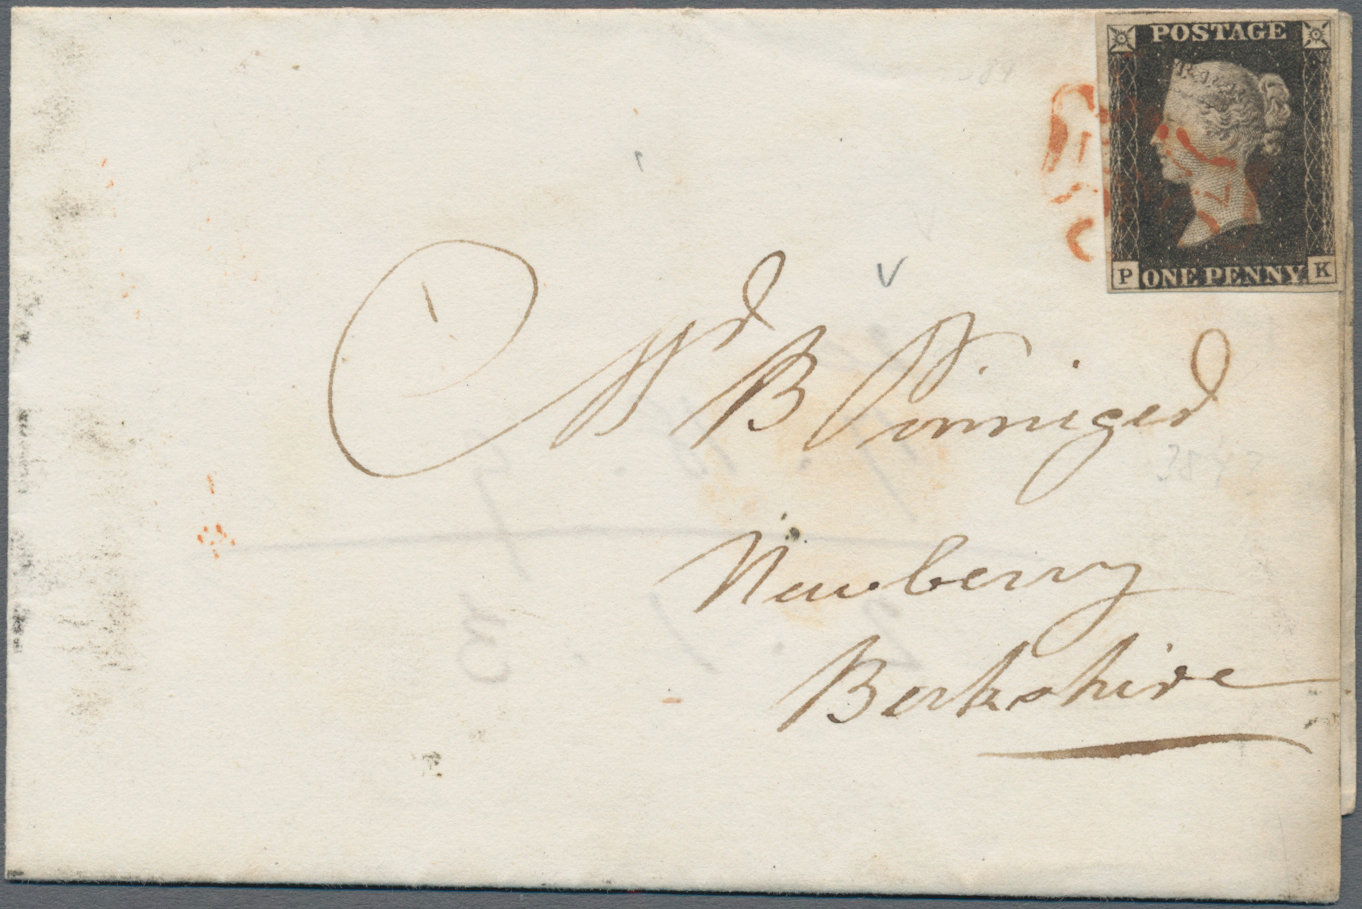 POSTAGE
P ONE PENNY. K
Mr B Winniged
Newberry
Berkshire
3843